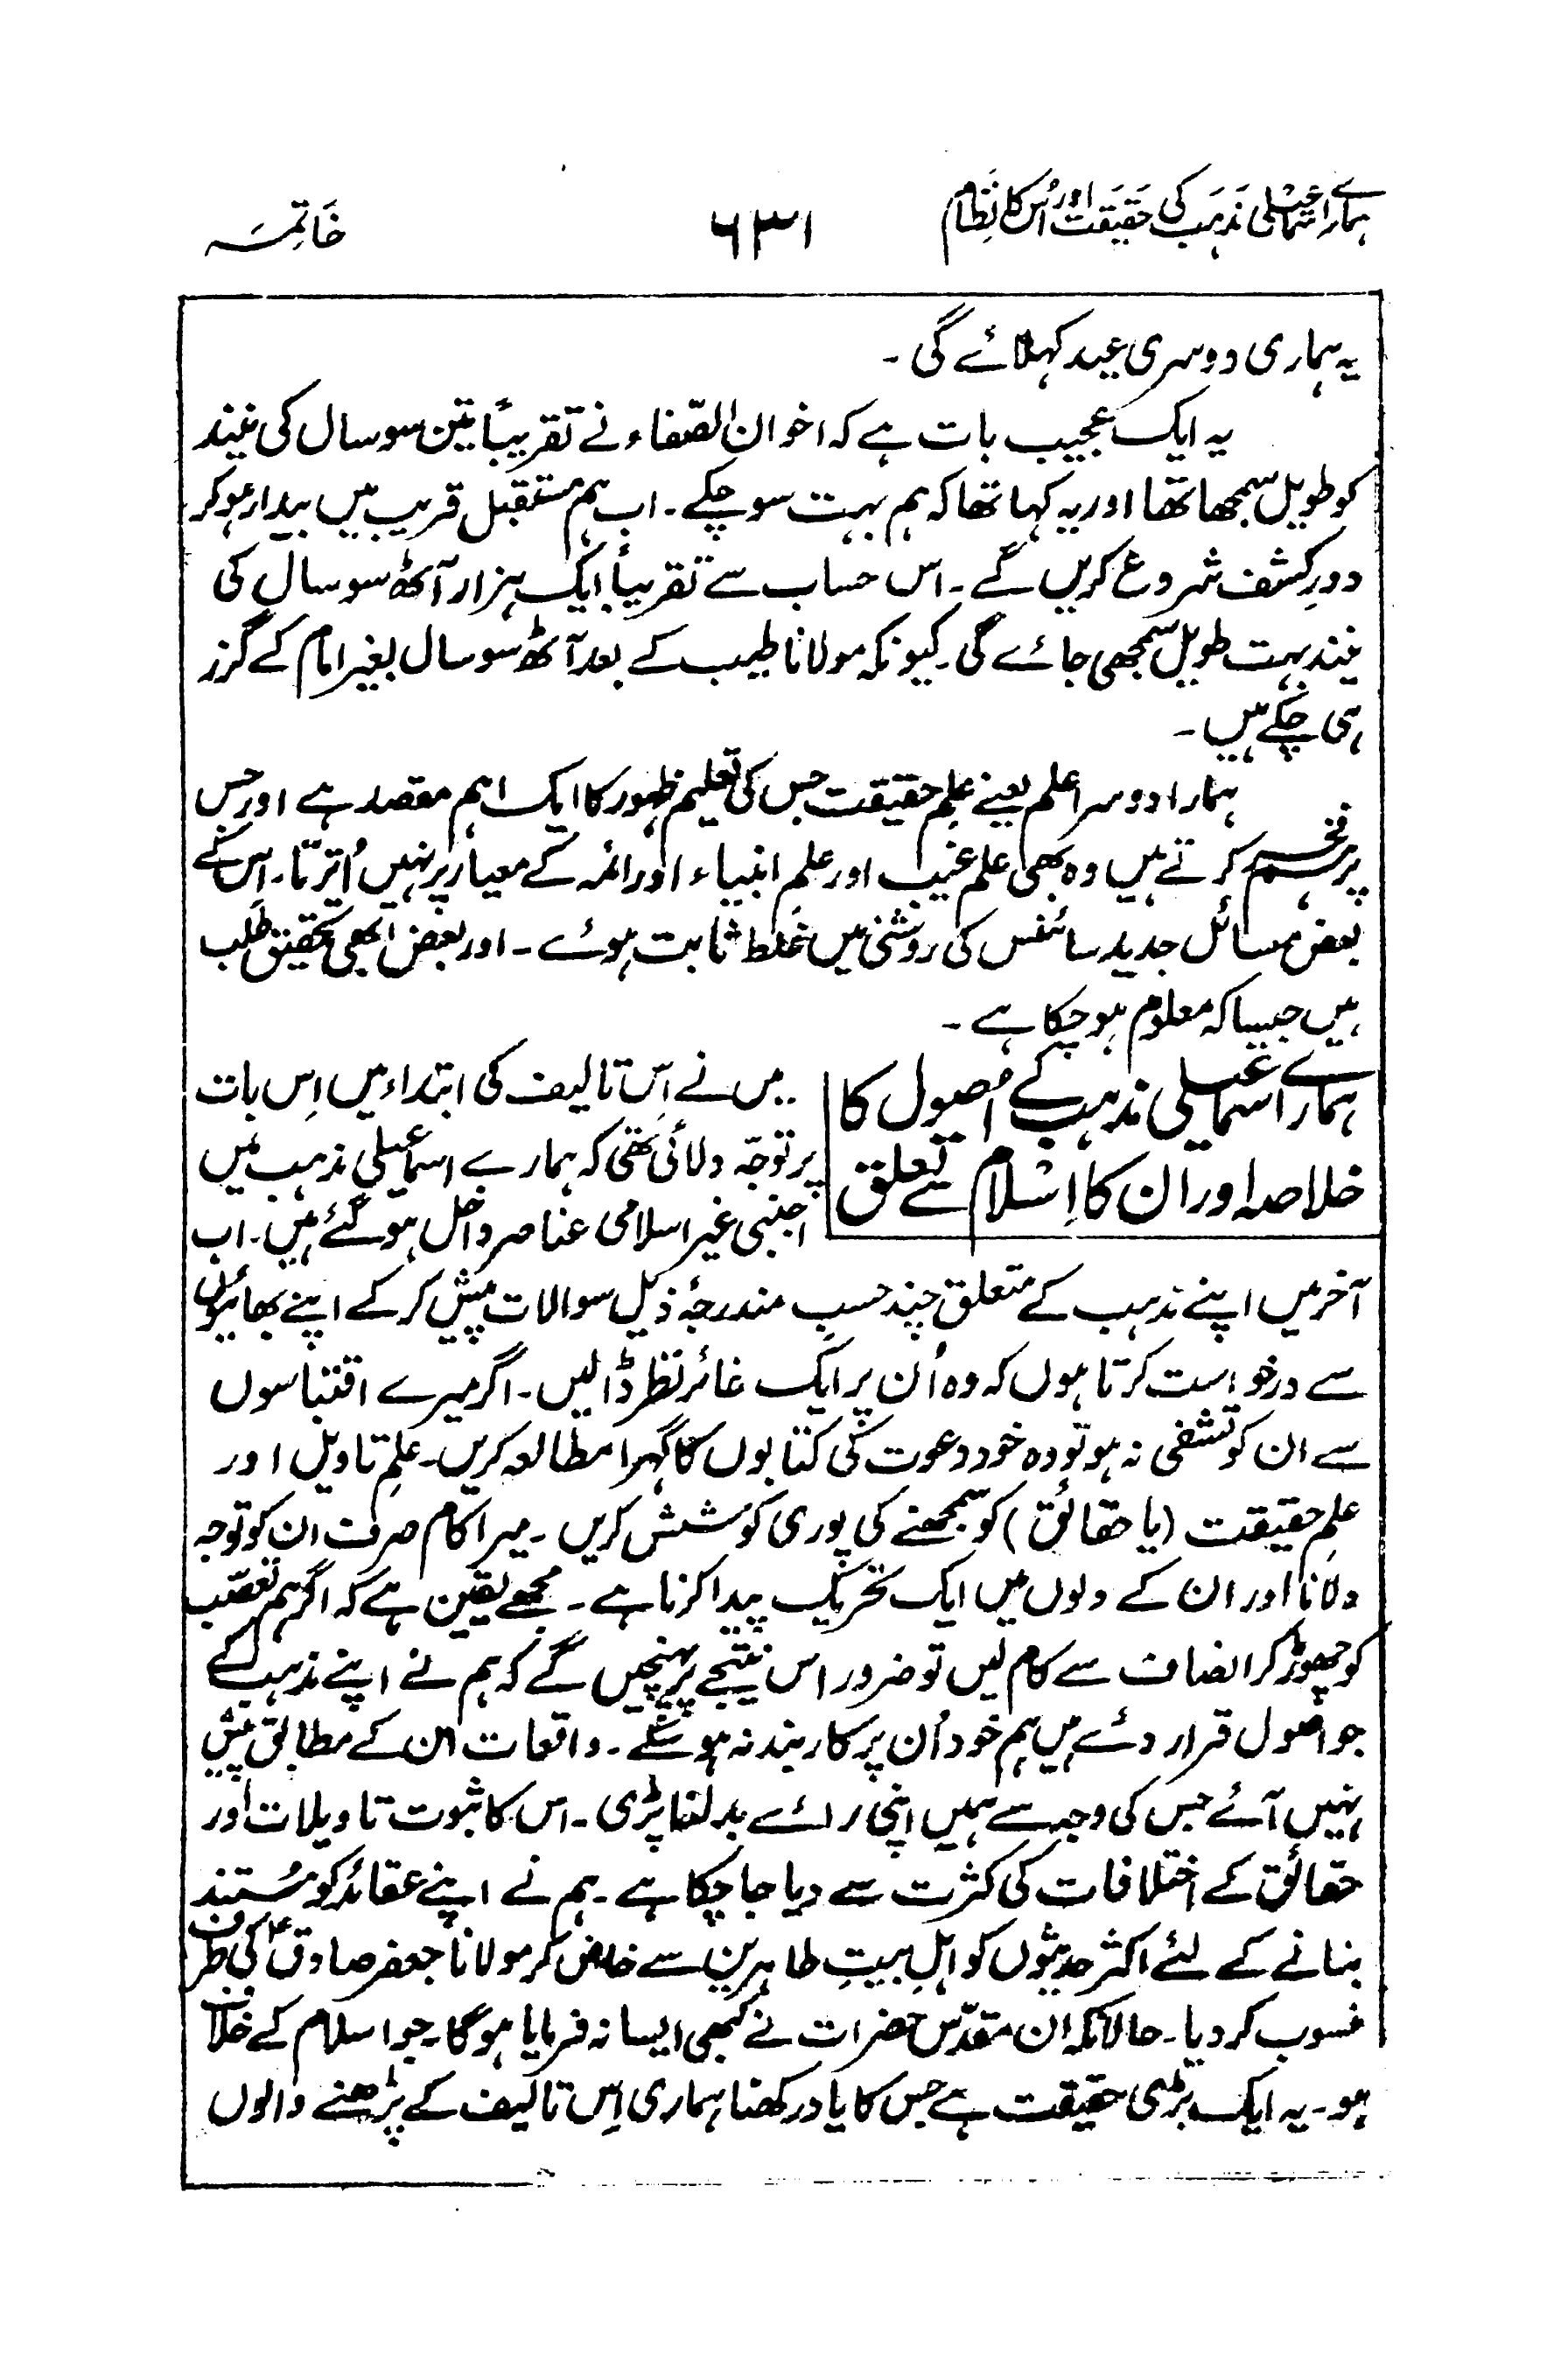 ہمارے اسماعیلی مذہب کی حقیقت اور اُس کا نظام
۶۳۱
خاتمہ
یہ ہماری دوسری عید کہلائے گی ۔
یہ ایک عجیب بات ہے کہ اخوان الصّفاء نے تقریباً تین سو سال کی نیند
کو طویل سمجھا تھا اور یہ کہا تھا کہ ہم بہت سو چکے ۔ اب ہم مستقبل قریب میں بیدار ہو کر
دورِ کشف شروع کریں گے ۔ اس حساب سے تقریباً ایک ہزار آٹھ سو سال کی
نیند بہت طویل سمجھی جائے گی ۔ کیونکہ مولانا طیب کے بعد آٹھ سو سال بغیر امام کے گزر
ہی چکے ہیں ۔
ہمارا دوسرا علم یعنے علمِ حقیقت جس کی تعلیم ظہور کا ایک اہم مقصد ہے اور جس
پر ہم فخر کرتے ہیں وہ بھی علم غیب اور علمِ انبیاء اور ائمہ کے معیار پر نہیں اُترتا ۔ اِس کے
بعض مسائل جدید سائنس کی روشنی میں غلط ثابت ہوئے ۔ اور بعض ابھی تحقیق طلب
ہیں جیسا کہ معلوم ہو چکا ہے ۔
ہمارے اسماعیلی مذہب کے اُصول کا
خلاصہ اور ان کا اِسلام سے تعلق
میں نے اِس تالیف کی ابتداء میں اِس بات
پر توجّہ دلائی تھی کہ ہمارے اسماعیلی مذہب میں
اجنبی غیر اسلامی عناصر داخل ہو گئے ہیں ۔ اب
آخر میں اپنے مذہب کے متعلق چند حسبِ مندرجۂ ذیل سوالات پیش کر کے اپنے بھائیوں
سے درخواست کرتا ہوں کہ وہ اُن پر ایک غائر نظر ڈالیں ۔ اگر میرے اقتباسوں
سے ان کو تشفی نہ ہو تو وہ خود دعوت کی کتابوں کا گہرا مطالعہ کریں ۔ علمِ تاویل اور
علمِ حقیقت (یا حقائق) کو سمجھنے کی پوری کوشش کریں ۔ میرا کام صرف ان کو توجہ
دلانا اور ان کے دلوں میں ایک تحریک پیدا کرنا ہے ۔ مجھے یقین ہے کہ اگر ہم تعصّب
کو چھوڑ کر انصاف سے کام لیں تو ضرور اس نتیجے پر پہنچیں گے کہ ہم نے اپنے مذہب کے
جو اصول قرار دئے ہیں ہم خود اُن پر کاربند نہ ہو سکے ۔ واقعات اُن کے مطابق پیش
نہیں آئے جس کی وجہ سے ہمیں اپنی رائے بدلنا پڑی ۔ اس کا ثبوت تاویلات اور
حقائق کے اختلافات کی کثرت سے دیا جا چکا ہے ۔ ہم نے اپنے عقائد کو مُستند
بنانے کے لئے اکثر حدیثوں کو اہلِ بیتِ طاہرین سے خاص کر مولانا جعفر صادق ؑ کی طرف
منسوب کر دیا ۔ حالانکہ ان مقدّس حضرات نے کبھی ایسا نہ فرمایا ہوگا ۔ جو اسلام کے خلاف
ہو ۔ یہ ایک بڑی حقیقت ہے جس کا یاد رکھنا ہماری اِس تالیف کے پڑھنے والوں